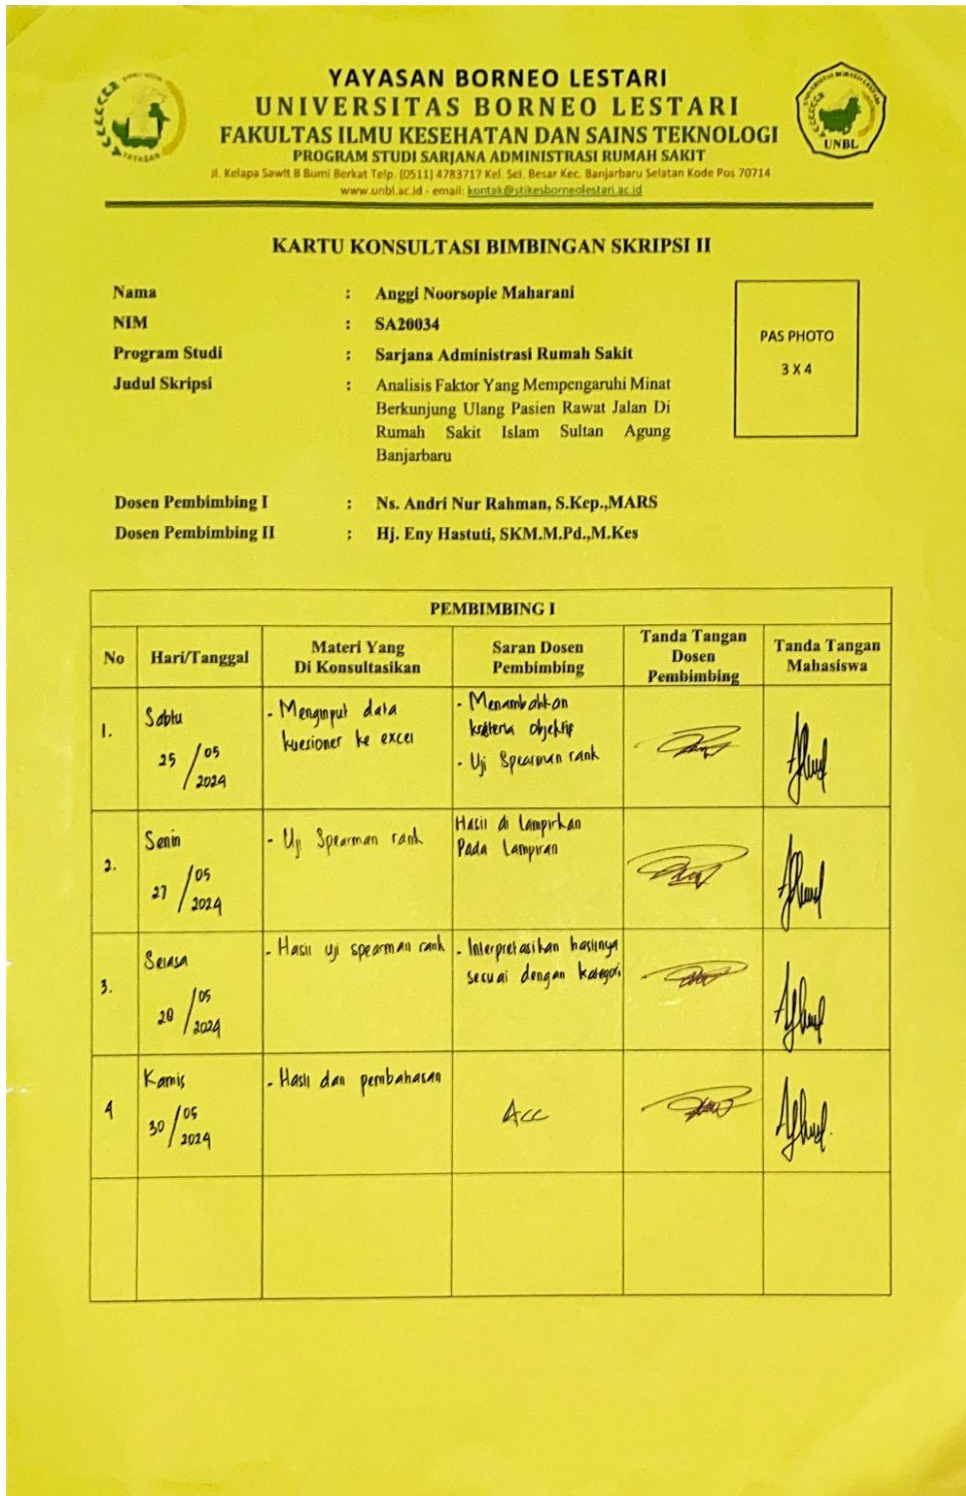 YAYASAN BORNEO LESTARI
UNIVERSITAS BORNEO LESTARI
FAKULTAS ILMU KESEHATAN DAN SAINS TEKNOLOGI
PROGRAM STUDI SARJANA ADMINISTRASI RUMAH SAKIT
Jl. Kelapa Sawit 8 Bumi Berkat Telp. (0511) 4783717 Kel. Sei. Besar Kec. Banjarbaru Selatan Kode Pos 70714
www.unbl.ac.id - email: kontak@stikesborneolestari.ac.id
YAYASAN
UNIVERSITAS BORNEO LESTARI
UNBL
KARTU KONSULTASI BIMBINGAN SKRIPSI II
Nama : Anggi Noorsopie Maharani
NIM : SA20034
Program Studi : Sarjana Administrasi Rumah Sakit
Judul Skripsi : Analisis Faktor Yang Mempengaruhi Minat
Berkunjung Ulang Pasien Rawat Jalan Di
Rumah Sakit Islam Sultan Agung
Banjarbaru
PAS PHOTO
3 X 4
Dosen Pembimbing I : Ns. Andri Nur Rahman, S.Kep.,MARS
Dosen Pembimbing II : Hj. Eny Hastuti, SKM.M.Pd.,M.Kes
PEMBIMBING I
No
Hari/Tanggal
Materi Yang
Di Konsultasikan
Saran Dosen
Pembimbing
Tanda Tangan
Dosen
Pembimbing
Tanda Tangan
Mahasiswa
1.
Sabtu
25 / 05
2024
- Menginput data
kuesioner ke excel
- Menambahkan
kriteria objektif
- Uji Spearman rank
2.
Senin
27 / 05
2024
- Uji Spearman rank
Hasil di lampirkan
Pada Lampiran
3.
Selasa
28 / 05
2024
- Hasil uji spearman rank
- Interpretasikan hasilnya
sesuai dengan kategori
4
Kamis
30 / 05
2024
- Hasil dan pembahasan
Acc